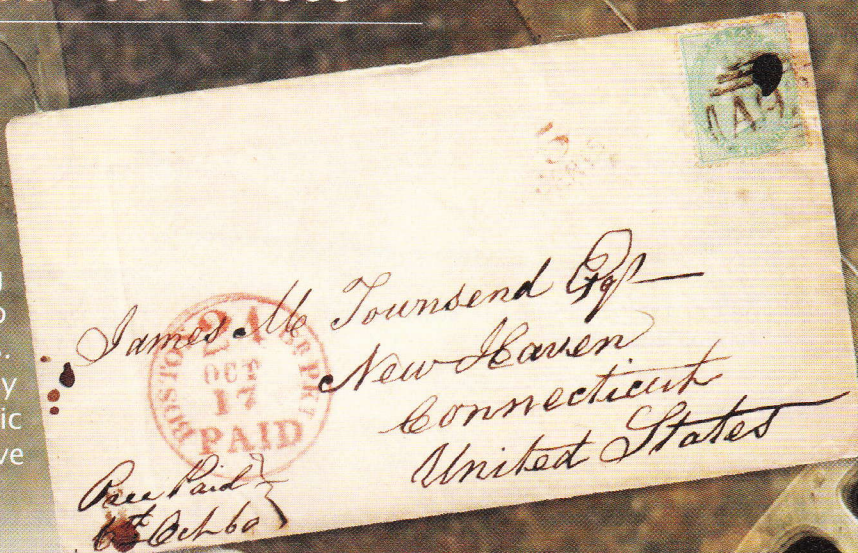 A
CENTS
James M Townsend Esqr
New Haven
Connecticut
United States
BOSTON BR PKT
24
OCT
17
PAID
Paid
6th Oct 60
y
ic
ve